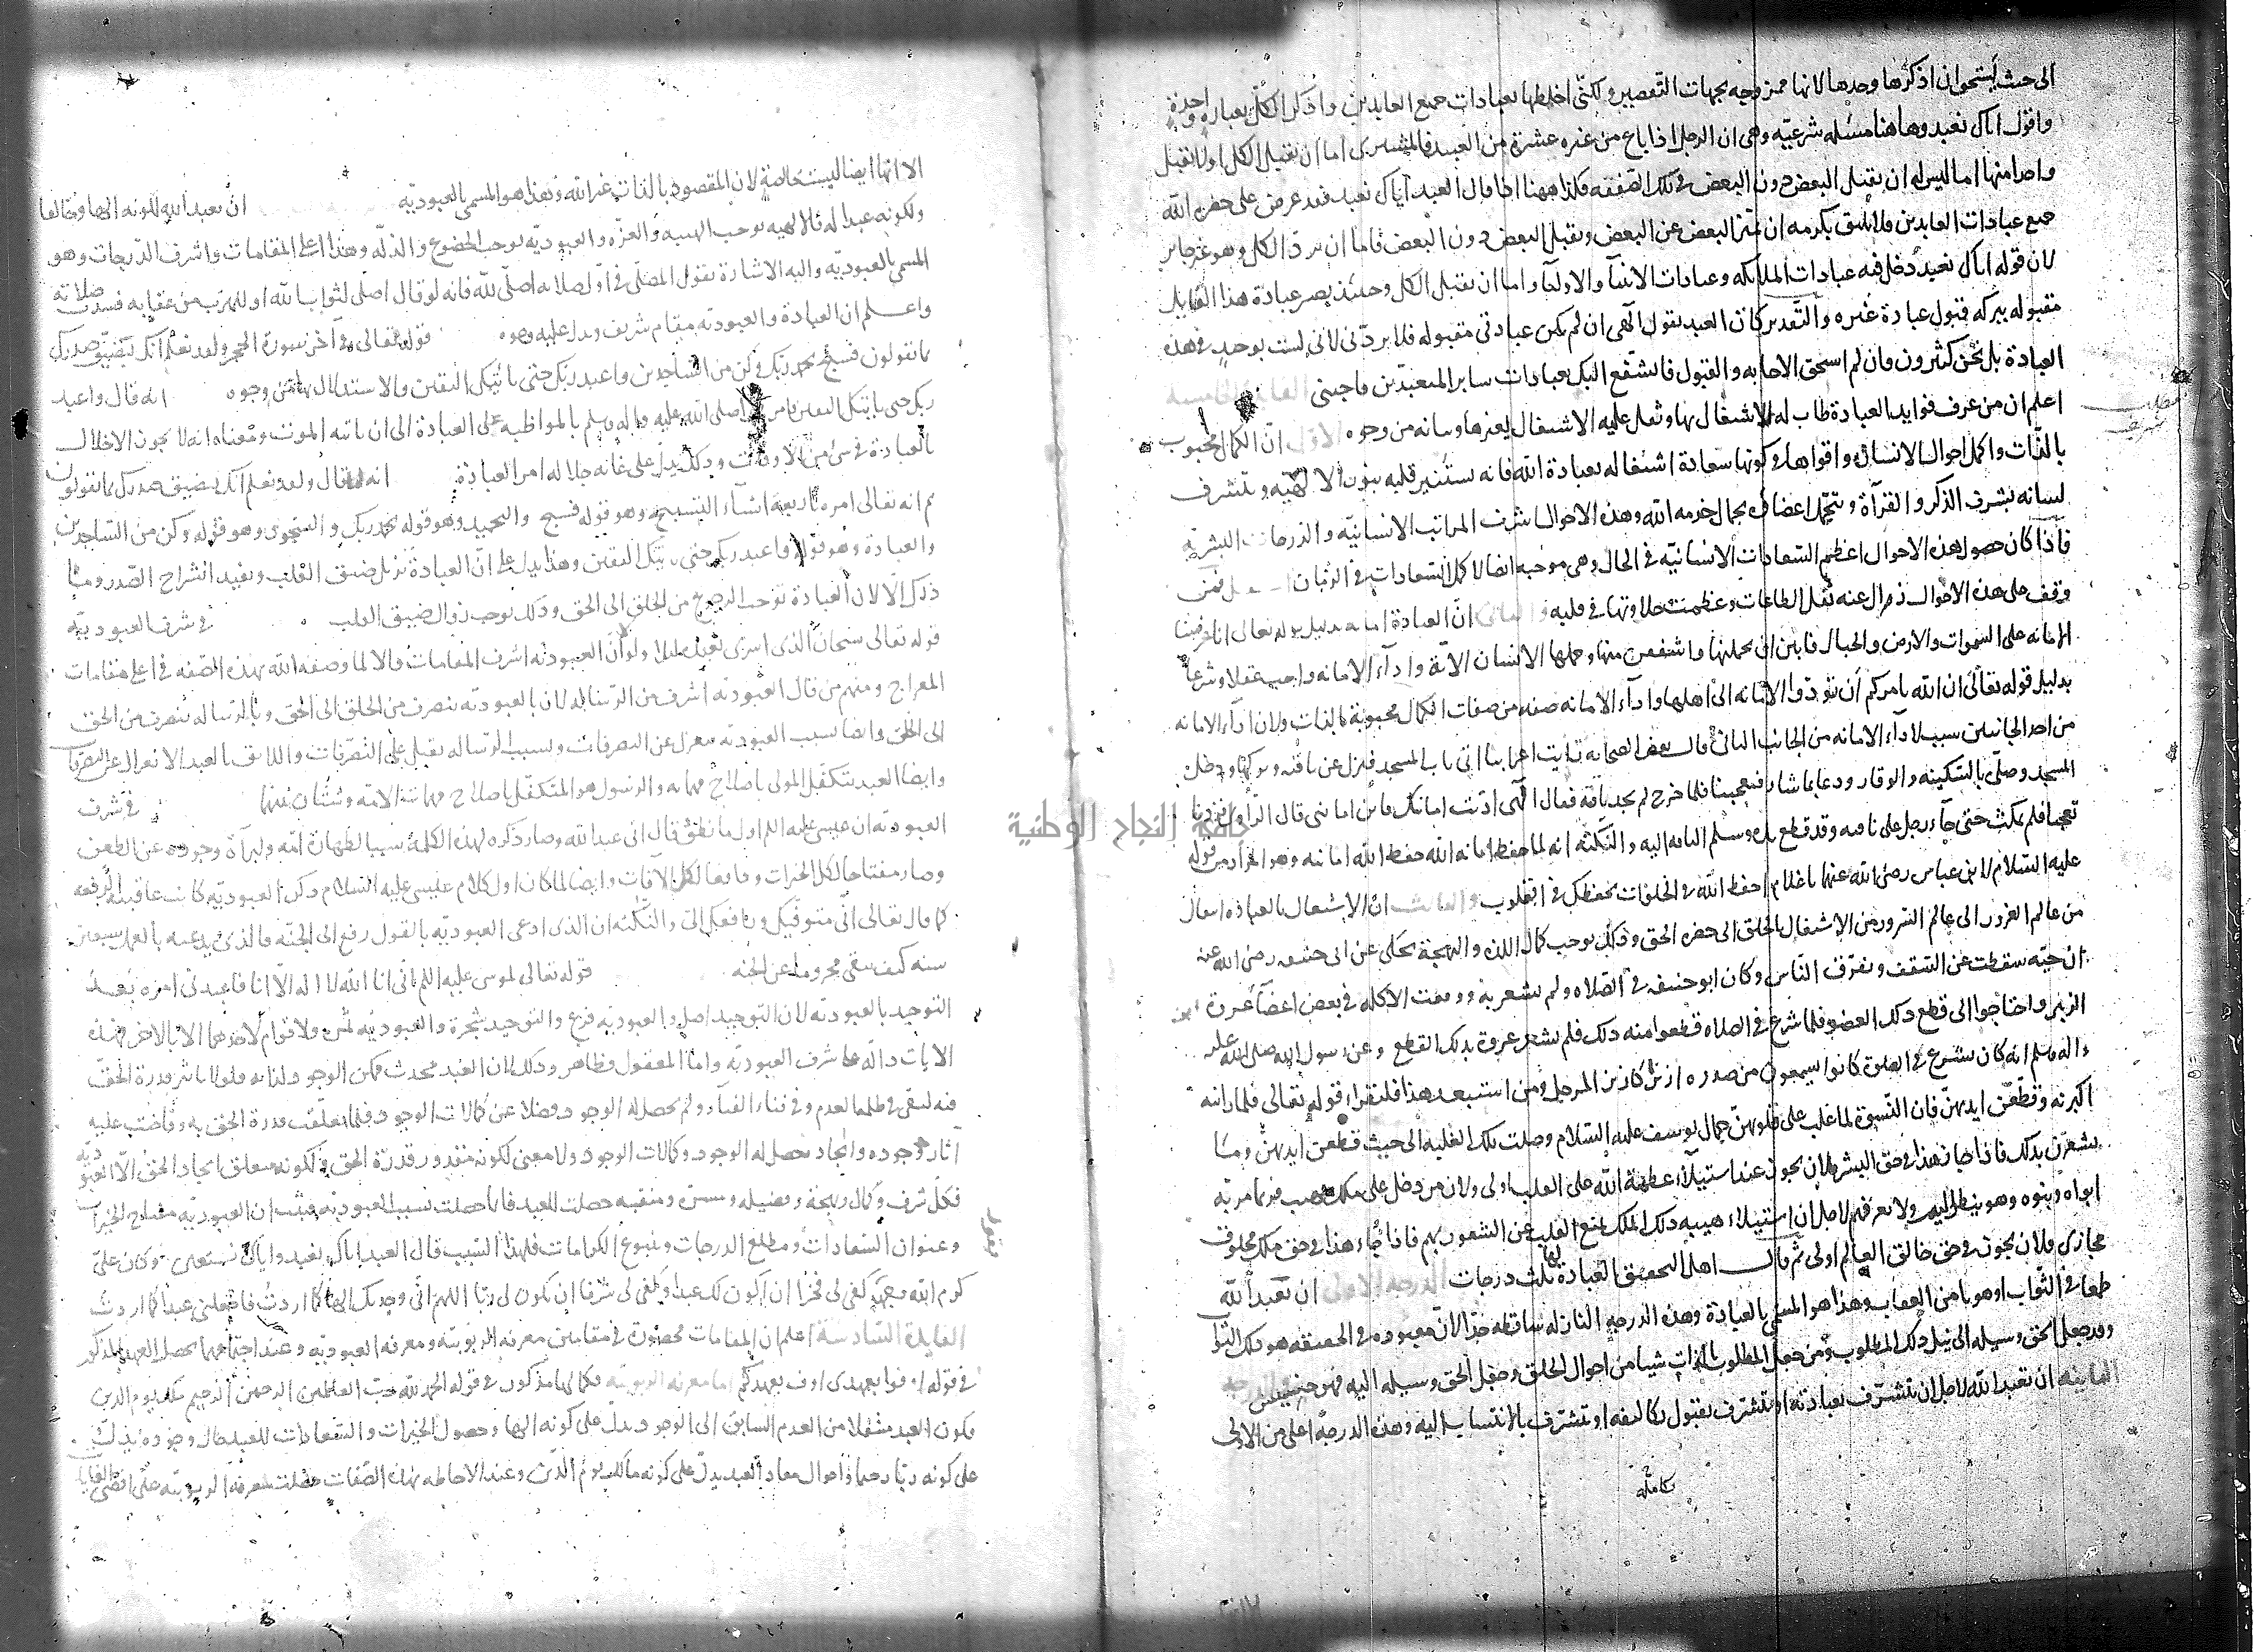 الى حيث يستحق ان اذكرها وحدها لانها ممزوجه بجهات التقصير ولكنى اخلطها بعبادات جميع العابدين واذكر الكل بعباره واحدة
واقول اياك نعبد وهاهنا مسئله شرعيه وهى ان الرجل اذا باع من غيره عشرة من العبيد فالمشترى اما ان يقبل الكل او لا يقبل
واحدا منها اما ليس له ان يقبل البعض دون البعض فى تلك الصفقه فكذا ههنا اذا قال العبد اياك نعبد فقد عرض على حضره الله
جميع عبادات العابدين فلا يليق بكرمه ان يميز البعض عن البعض ويقبل البعض دون البعض فاما ان يرد الكل وهو غير جايز
لان قوله اياك نعبد دخل فيه عبادات الملايكه وعبادات الانبيآ والاوليآ واما ان يقبل الكل وحينئذ يصير عبادة هذا القايل
مقبوله ببركه قبول عبادة غيره والتقدير كان العبد يقول الهى ان لم يكن عبادتى مقبوله فلا يردنى لانى لست بوحيد فى هذه
العبادة بل نحن كثيرون فان لم استحق الاجابه والقبول فاتشفع اليك بعبادات ساير المتعبدين فاجبنى الفايدة الخامسه
اعلم ان من عرف فوايد العبادة طاب له الاشتغال بها وثقل عليه الاشتغال بغيرها وبيانه من وجوه الاول ان الكمال محبوب
بالذات واكمل احوال الانسان واقواها فى كونها سعادة اشتغاله بعبادة الله فانه يستنير قلبه بنور الالهيه ويتشرف
لسانه بشرف الذكر والقرآة ويتجمل اعضاؤه بجمال خدمه الله وهذه الاحوال اشرف المراتب الانسانيه والدرجات البشريه
فاذا كان حصول هذه الاحوال اعظم السعادات الانسانيه فى الحال وهى موجبه ايضا لاكمل السعادات فى الزمان المستقبل فمن
وقف على هذه الاحوال زوال عنه ثقل الطاعات وعظمت حلاوتها فى قلبه الثانى ان العبادة امانه بدليل قوله تعالى انا عرضنا
الامانه على السموات والارض والجبال فابين ان يحملنها واشفقن منها وحملها الانسان الآية وادآء الامانه واجب عقلا وشرعا
بدليل قوله تعالى ان الله يامركم ان تؤدوا الامانه الى اهلها وادآء الامانه صفه من صفات الكمال محبوبة بالذات ولان ادآء الامانه
من احد الجانبين سبب لادآء الامانه من الجانب الثانى قال بعض الصحابه رايت اعرابيا اتى باب المسجد فنزل عن ناقته وتركها ودخل
المسجد وصلى بالسكينه والوقار ودعا بما شاء فتعجبنا فلما خرج لم يجد ناقته فقال الهى اديت امانتك فاين امانتى قال الراوى فزدنا
تعجبا فلم يمكث حتى جآء رجل على ناقته وقد قطع يده وسلم الناقه اليه والنكته انه لما حفظ امانه الله حفظ الله امانته وهو المراد من قوله
عليه السلام لابن عباس رضى الله عنهما يا غلام احفظ الله فى الخلوات يحفظك فى الفلوات والثالث ان الاشتغال بالعبادة انتقال
من عالم الغرور الى عالم السرور من الاشتغال بالخلق الى حضره الحق وذلك يوجب كمال اللذه والبهجة يحكى عن ابى حنيفه رضى الله عنه
ان حيه سقطت عن السقف وتفرق الناس وكان ابو حنيفه فى الصلاه ولم يشعر به ووقعت الاكله فى بعض اعضآ عروة ابن
الزبير واحتاجوا الى قطع ذلك العضو فلما شرع فى الصلاه قطعوا منه ذلك فلم يشعر عروة بذلك القطع وعن رسول الله صلى الله عليه
واله وسلم انه كان يشرع فى الصلوة كانوا يسمعون من صدره ازيزا كازيز المرجل ومن استبعد هذا فليقراء قوله تعالى فلما راينه
اكبرنه وقطعن ايديهن فان النسوة لما غلب على قلوبهن جمال يوسف عليه السلام وصلت تلك الغلبه الى حيث قطعن ايديهن وما
يشعرن بذلك فاذا جاز هذا فى حق البشر فلان يجوز عند استيلآء عظمة الله على القلب اولى ولان من دخل على ملك مهيب فربما مر به
ابواه وبنوه وهو ينظر اليهم ولا يعرفهم لاجل ان استيلاء هيبه ذلك الملك يمنع القلب عن الشعور بهم فاذا جاء هذا فى حق ملك مخلوق
مجازى فلان يجوز فى حق خالق العالم اولى ثم قال اهل التحقيق العبادة لها ثلث درجات الدرجه الاولى ان تعبد الله
طمعا فى الثواب او هربا من العقاب وهذا هو المسمى بالعبادة وهذه الدرجه النازله ساقطه جدا لان معبوده فى الحقيقه هو ذلك الثواب
وقد جعل الحق وسيله الى نيل ذلك المطلوب ومن جعل المطلوب بالذات شيا من احوال الخلق وجعل الحق وسيله اليه فهو خسيس الدرجه
الثانيه ان تعبد الله لاجل ان تتشرف بعبادته او تتشرف بقبول تكاليفه او تتشرف بالانتساب اليه وهذه الدرجه اعلى من الاولى
كامله
الا انها ايضا ليست خالصة لان المقصود بالذات غير الله وهذا هو المسمى بالعبوديه ان تعبد الله لكونه الها وخالقا
ولكونه عبدا له فالالهيه توجب الهيبه والعزه والعبوديه توجب الخضوع والذله وهذا اعلى المقامات واشرف الدرجات وهو
المسمى بالعبوديه واليه الاشارة بقول المصلى فى اول صلاته اصلى لله فانه لو قال اصلى لثواب الله او للهرب من عقابه فسدت صلاته
واعلم ان العبادة والعبوديه مقام شريف ويدل عليه وجوه قوله تعالى فى آخر سورة الحجر ولقد نعلم انك يضيق صدرك
بما يقولون فسبح بحمد ربك وكن من الساجدين واعبد ربك حتى ياتيك اليقين والاستدلال بها من وجوه انه قال واعبد
ربك حتى ياتيك اليقين فامر محمدا صلى الله عليه واله وسلم بالمواظبه على العبادة الى ان ياتيه الموت ومعناه انه لا يجوز الاخلال
بالعبادة فى شى من الاوقات وذلك يدل على غايه جلاله امر العبادة انه قال ولقد نعلم انك يضيق صدرك بما يقولون
ثم انه تعالى امره باربعة اشيآء التسبيح وهو قوله فسبح والتحميد وهو قوله بحمد ربك والسجود وهو قوله وكن من الساجدين
والعبادة وهو قوله واعبد ربك حتى ياتيك اليقين وهذا يدل على ان العبادة تزيل ضيق القلب وتفيد انشراح الصدر وما
ذلك الا لان العبادة توجب الرجوع من الخلق الى الحق وذلك يوجب زوال ضيق القلب فى شرف العبوديه
قوله تعالى سبحان الذى اسرى بعبده ليلا ولولا ان العبوديه اشرف المقامات والا لما وصفه الله بهذه الصفه فى اعلى مقامات
المعراج ومنهم من قال العبوديه اشرف من الرساله لان بالعبوديه ينصرف من الخلق الى الحق وبالرساله ينصرف من الحق
الى الخلق وايضا بسبب العبوديه ينعزل عن التصرفات وبسبب الرساله يقبل على التصرفات واللايق بالعبد الانعزال عن التصرفات
وايضا العبد يتكفل المولى باصلاح مهماته والرسول هو المتكفل باصلاح مهمات الامه وشتان بينهما فى شرف
العبوديه ان عيسى عليه السلم اول ما نطق قال انى عبد الله وصار ذكره لهذه الكلمة سببا لطهارة امه ولبرآة وجوده عن الطعن
وصار مفتاحا لكل الخيرات ودافعا لكل الآفات وايضا لما كان اول كلام عيسى عليه السلام ذكر العبوديه كانت عاقبته الرفعه
كما قال تعالى انى متوفيك ورافعك الى والنكته ان الذى ادعى العبوديه بالقول رفع الى الجنه فالذى يدعيه بالعمل سبعين
سنه كيف يبقى محروما عن الجنه قوله تعالى لموسى عليه السلم اننى انا الله لا اله الا انا فاعبدنى امره بعد
التوحيد بالعبوديه لان التوحيد اصل والعبوديه فرع والتوحيد شجرة والعبوديه ثمر ولا قوام لاحدهما الا بالاخر فهذه
الايات داله على شرف العبوديه واما المعقول فظاهر وذلك لان العبد محدث ممكن الوجود لذاته فلولا تاثير قدرة الحق
فيه لبقى فى ظلمه العدم وفى فناء الفنآء ولم يحصل له الوجود فضلا عن كمالات الوجود فلما تعلقت قدرة الحق به وفاضت عليه
آثار جوده وايجاده حصل له الوجود وكمالات الوجود ولا معنى لكونه مقدور قدرة الحق ولكونه متعلق ايجاد الحق الا العبوديه
فكل شرف وكمال وبهجة وفضيله ومسرة ومنقبه حصلت للعبد فانما حصلت بسبب العبوديه فثبت ان العبوديه مفتاح الخيرات
وعنوان السعادات ومطلع الدرجات وينبوع الكرامات فلهذا السبب قال العبد اياك نعبد واياك نستعين وكان على
كرم الله وجهه يقول كفى لى فخرا ان اكون لك عبدا وكفى لى شرفا ان تكون لى ربا اللهم انى وجدتك الها كما اردت فاجعلنى عبدا كما اردت
الفايدة السادسة اعلم ان المقامات محصورة فى مقامين معرفه الربوبيه ومعرفه العبوديه وعند اجتماعهما يحصل العهد المذكور
فى قوله اوفوا بعهدى اوف بعهدكم اما معرفه الربوبيه فكمالها مذكور فى قوله الحمد لله رب العالمين الرحمن الرحيم ملك يوم الدين
فكون العبد منتقلا من العدم السابق الى الوجود يدل على كونه الها وحصول الخيرات والسعادات للعبد حال وجوده يدل
على كونه ربا رحمانا واحوال معاد العبد يدل على كونه مالك يوم الدين وعند الاحاطه بهذه الصفات حصلت معرفه الربوبيه على اقصى الغايات
جامعة النجاح الوطنية